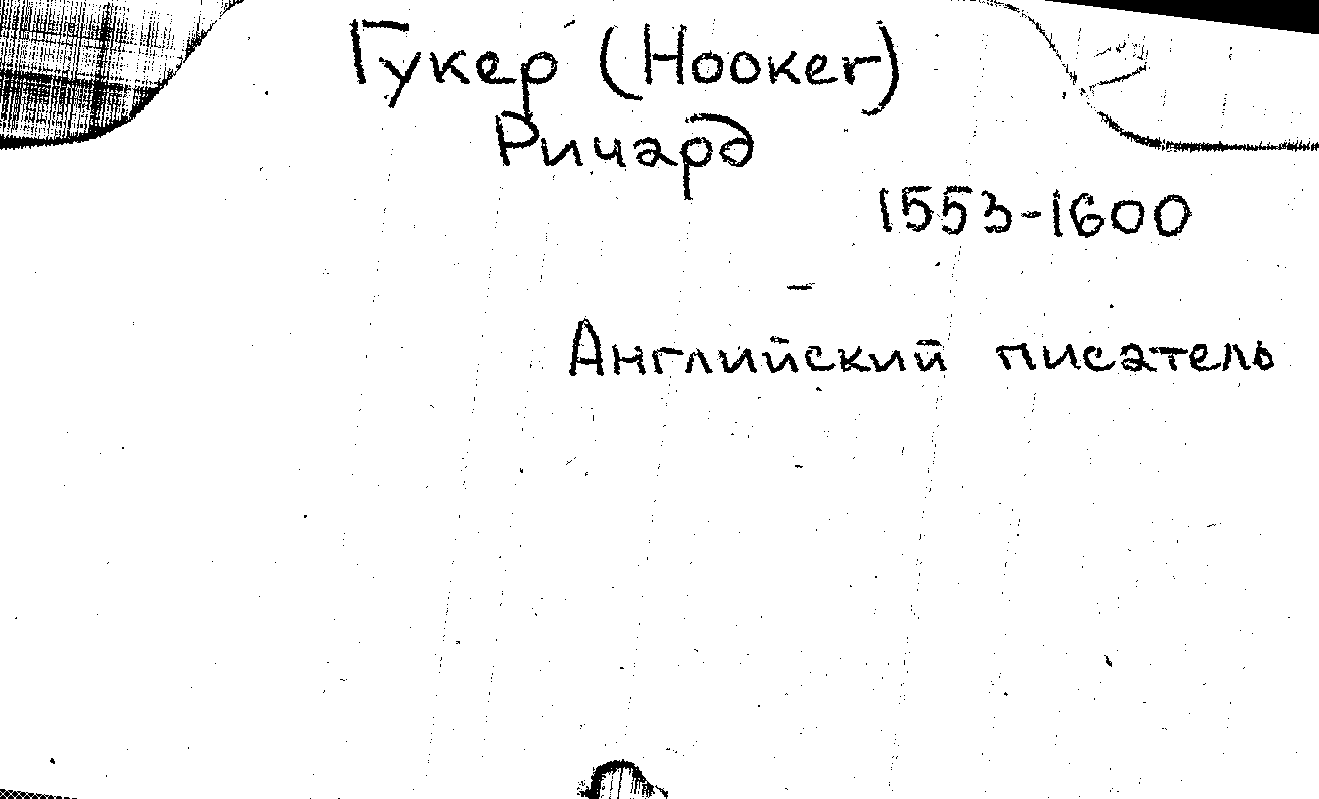 Гукер (Hooker)
Ричард
1553-1600
Английский писатель